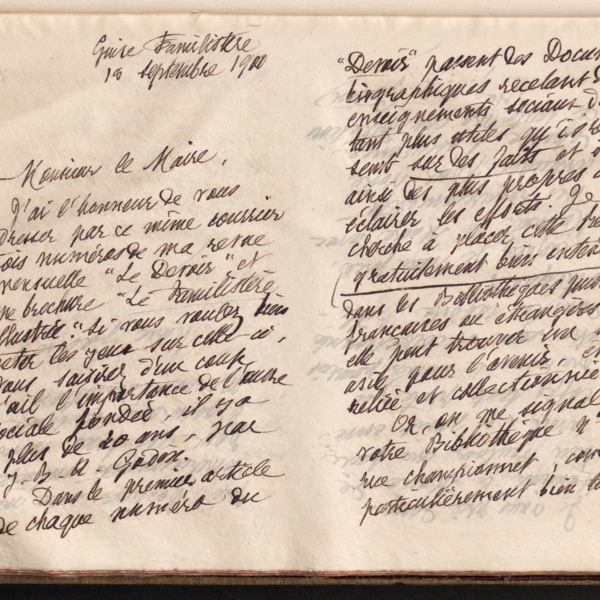 Guise Familistère
18 septembre 1900
Monsieur le Maire,
J'ai l'honneur de vous
dresser par ce même courrier
ois numéros de ma revue
mensuelle "Le Devoir" et
ne brochure "Le Familistère
llustré." Si vous voulez bien
jeter les yeux sur celle-ci,
vous saisirez d'un coup
d'œil l'importance de l'œuvre
sociale fondée il y a
plus de 20 ans, par
J-B-A-Godin.
Dans le premier article
de chaque numéro du
"Devoir" passent des Docum
biographiques recelant d
enseignements sociaux d
tant plus utiles qu'ils re
sent sur des faits et
ainsi des plus propres à
éclairer les efforts. Je
cherche à placer cette re
gratuitement bien enten
dans les Bibliothèques pu
françaises ou étrangères
elle peut trouver un
asile pour l'avenir, ê
reliée et collectionnée
Or, on me signal
votre Bibliothèque
rue championnet, com
particulièrement bien